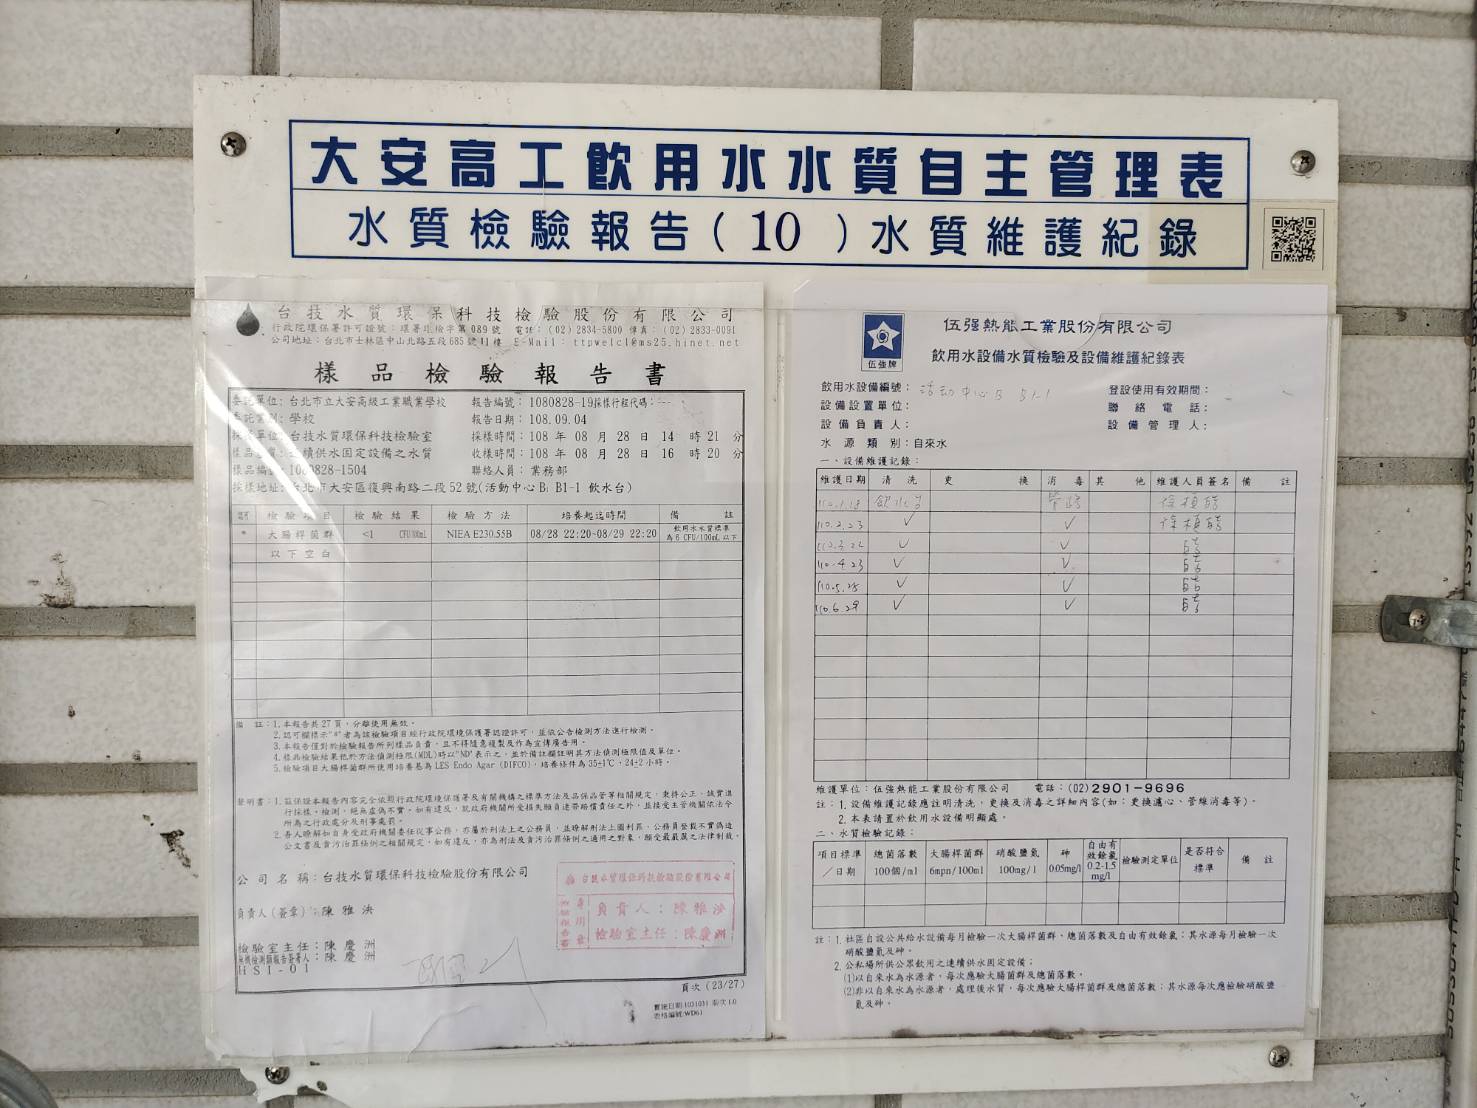 大安高工飲用水水質自主管理表
水質檢驗報告(10)水質維護紀錄
台技水質環保科技檢驗股份有限公司
行政院環保署許可證號:環署環檢字第089號 電話:(02)2834-5800 傳真:(02)2833-0091
公司地址:台北市士林區中山北路五段685號11樓 E-Mail: ttpwelcl@ms25.hinet.net
樣品檢驗報告書
委託單位:台北市立大安高級工業職業學校 報告編號:1080828-19採樣行程代碼:--
委託業別:學校 報告日期:108.09.04
採樣單位:台技水質環保科技檢驗室 採樣時間:108 年 08 月 28 日 14 時 21 分
樣品基質:連續供水固定設備之水質 收樣時間:108 年 08 月 28 日 16 時 20 分
樣品編號:1080828-1504 聯絡人員:業務部
採樣地址:台北市大安區復興南路二段52號(活動中心B B1-1 飲水台)
檢驗項目 檢驗結果 檢驗方法 培養起迄時間 備註
* 大腸桿菌群 <1 CFU/100mL NIEA E230.55B 08/28 22:20~08/29 22:20 飲用水水質標準為 6 CFU/100mL 以下
以下空白
備 註:1.本報告共27頁,分離使用無效。
2.認可欄標示"*"者為該檢驗項目經行政院環境保護署認證許可,並依公告檢測方法進行檢測。
3.本報告僅對於檢驗報告所列樣品負責,且不得隨意複製及作為宣傳廣告用。
4.樣品檢驗結果低於方法偵測極限(MDL)時以"ND"表示之,並於備註欄註明其方法偵測極限值及單位。
5.檢驗項目大腸桿菌群所使用培養基為 LES Endo Agar (DIFCO),培養條件為35±1℃,24±2小時。
聲明書:1.茲保證本報告內容完全依照行政院環境保護署及有關機構之標準方法及品保品管等相關規定,秉持公正、誠實進
行採樣、檢測,絕無虛偽不實。如有違反,就政府機關所受損失願負連帶賠償責任之外,並接受主管機關依法令
所為之行政處分及刑事處罰。
2.吾人瞭解如自身受政府機關委任從事公務,亦屬於刑法上之公務員,並瞭解刑法上圖利罪、公務員登載不實偽造
公文書及貪污治罪條例之相關規定,如有違反,亦為刑法及貪污治罪條例之適用之對象,願受最嚴厲之法律制裁。
公司名稱:台技水質環保科技檢驗股份有限公司
負責人(簽章):陳雅泱
檢驗室主任:陳慶洲
無機檢測類報告簽署人:陳慶洲
HSI-01
台技水質環保科技檢驗股份有限公司
負責人:陳雅泱
檢驗室主任:陳慶洲
頁次 (23/27)
伍強牌
伍强熱能工業股份有限公司
飲用水設備水質檢驗及設備維護紀錄表
飲用水設備編號:活動中心B B1-1 登設使用有效期間:
設備設置單位: 聯絡電話:
設備負責人: 設備管理人:
水源類別:自來水
一、設備維護記錄:
維護日期 清洗 更換 消毒 其他 維護人員簽名 備註
110.1.18
110.2.23 ✓ ✓
110.3.22 ✓ ✓
110.4.23 ✓ ✓
110.5.28 ✓ ✓
110.6.29 ✓ ✓
維護單位:伍强熱能工業股份有限公司 電話:(02)2901-9696
註:1.設備維護記錄應註明清洗,更換及消毒之詳細內容(如:更換濾心、管線消毒等)。
2.本表請置於飲用水設備明顯處。
二、水質檢驗記錄:
項目標準/日期 總菌落數 100個/ml 大腸桿菌群 6mpn/100ml 硝酸鹽氮 100mg/l 砷 0.05mg/l 自由有效餘氯 0.2-1.5 mg/l 檢驗測定單位 是否符合標準 備註
註:1.社區自設公共給水設備每月檢驗一次大腸桿菌群、總菌落數及自由有效餘氯;其水源每月檢驗一次
硝酸鹽氮及砷。
2.公私場所供公眾飲用之連續供水固定設備:
(1)以自來水為水源者,每次應驗大腸菌群及總菌落數。
(2)非以自來水為水源者,處理後水質,每次應驗大腸桿菌群及總菌落數;其水源每次應檢驗硝酸鹽
氮及砷。